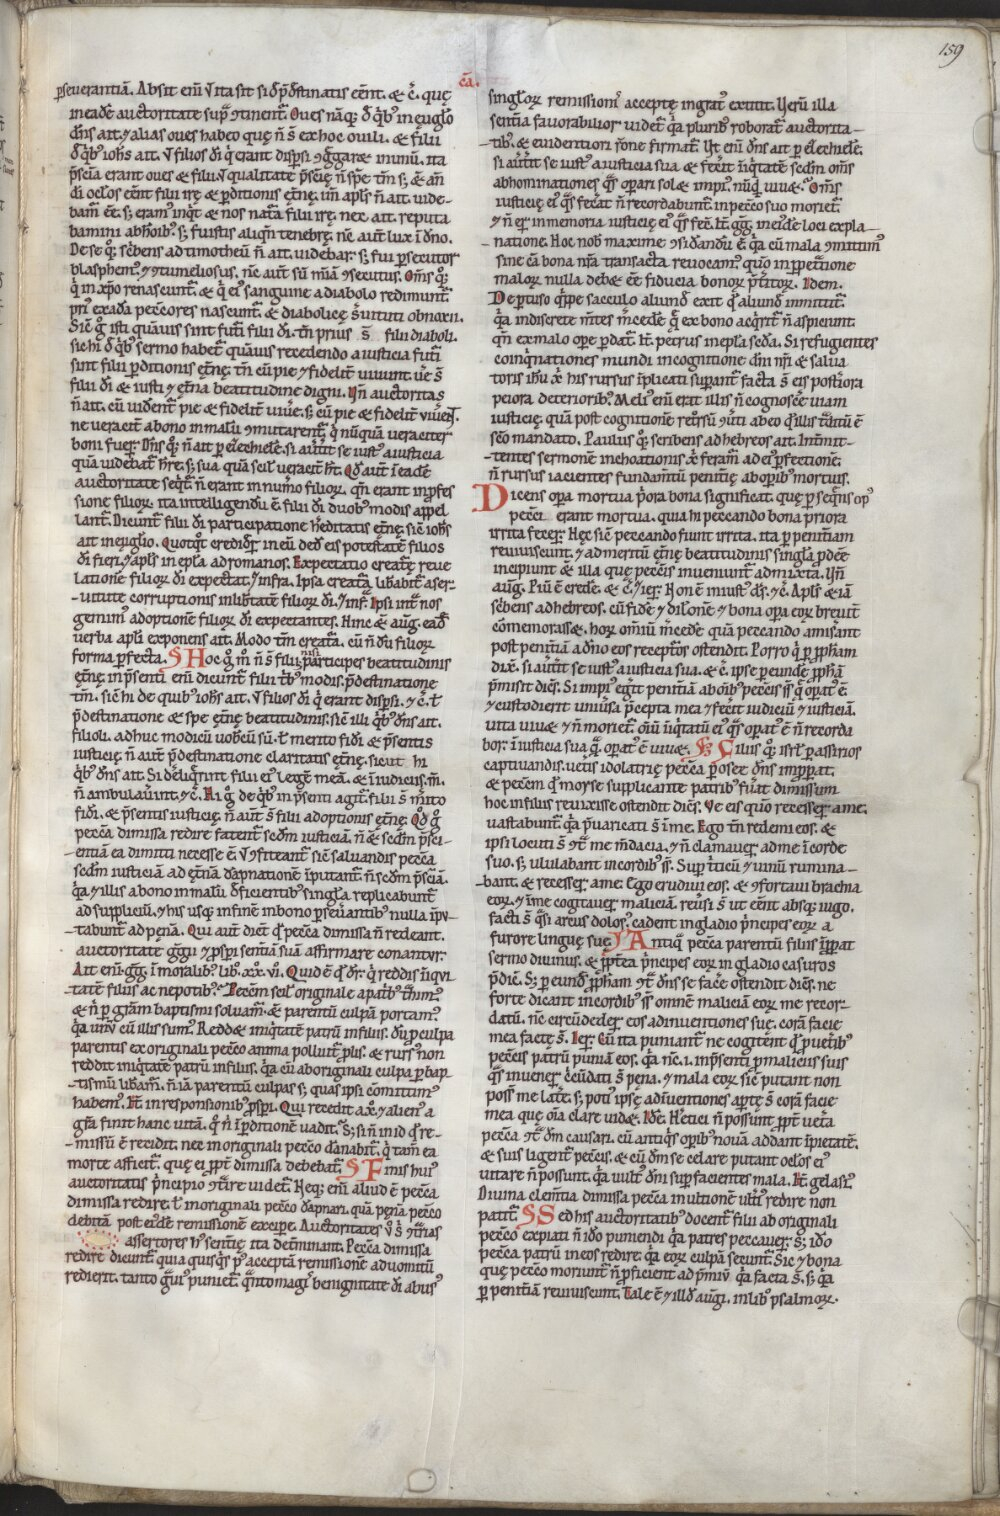 159
cā.
ꝑseuerantiā. Absit enī ⁊ ita sit si ꝺ p̄ꝺstinatis eēnt. & c̄. quę
in eadē auctoritate sup̄ ɔtinent᷑. Oues nāq; ꝺ q̄b; in euglo
dn̄s ait. ⁊ alias oues habeo quę n̄ s̄ ex hoc ouili. & filii
ꝺ q̄b; ioh̄s ait. ⁊ filios dī q̄ erant dispsi ɔḡgaret in unū. ita
p̄sciā erant oues & filii. ⁊ qualitate p̄scię n̄ spe tm̄ s; & an̄
dī oc̄los eēnt filii irę & ꝑditionis et̄nę. un̄ apl̄s n̄ ait. uide-
bam̄ eē. s; eram; inq̄t & nos nat̄a filii irę. nec ait. reputa
bamini ab hoīb;. s; fuistis aliqn̄ tenebrę. nc̄ aut̄ lux ī dn̄o.
De se q; sc̄bens ad timotheū n̄ ait. uidebar. s; fui ꝑsecutor
blasphem; ⁊ ɔtumeliosus. nc̄ aut̄ sū mīam ɔsecutus. Om̄s q;
q̄ in xp̄o renascunt᷑. & q̄ ei; sanguine a diabolo redimunt᷑.
pri; ex adā peccōres nascunt᷑. & diabolicę ẜuituti obnoxii.
Sic̄ g̊ isti quāuis sint futī filii dī. tn̄ prius s̄ filii diaboli.
sic hi ꝺ q̄b; sermo habet᷑ quāuis recedendo a iusticia fut̄i
sint filii ꝑditionis et̄nę. tn̄ cū pie ⁊ fidelit̄ uiuunt. uē s̄
filii dī & iusti ⁊ et̄na beatitudine digni. Un̄ auctoritas
n̄ ait. cū uident᷑ pie & fidelit̄ uiuē. s; cū pie & fidelit̄ uiuer̄t.
ne uerā a bono in malū ɔmutarent᷑. q̄ nūquā ueraciter
boni fuer̄. Dn̄s q; n̄ ait ꝑ ezechielē. si au̓tit se iust; a iusticia
quā uidebat᷑ hr̄e. s; sua quā scil; uerac̄it̄ ht̄. Qđ aut̄ ī eadē
auctoritate seq̄t᷑. n̄ erant in num̄o filior̄. qn̄ erant in ꝓfes
sione filior̄. ita intelligendū ē. filii dī duob; modis appel
lant᷑. Dicunt᷑ filii dī participatione h̓editatis et̄nę. sic̄ ioh̄s
ait in euglio. Quotq̊t credider̄ in eū ded̄ eis potestatē filios
dī fieri. ⁊ apl̄s in epl̄a ad romanos. Expectatio creat̄ę reue
lationē filior̄ dī expectat. ⁊ infra. Ipsa creatā libabit᷑ a ser-
uitute corruptionis in lib̓tatē filior̄ dī. ⁊ inf̄. Ipsi int̄ nos
gemim; adoptionē filior̄ dī expectantes. Hinc & aug. eadē
uerba apl̄i exponens ait. Modo tm̄ creat̄a. cū n̄dū filior̄
forma ꝑfecta. § Hoc g̊ m̊ n̄ s̄ filii; nisi participes beatitudinis
et̄nę. in p̄senti enī dicunt᷑ filii t̓b; modis. p̄destinatione
tm̄. sic̄ hi de quib; ioh̄s ait. ⁊ filios dī q̄ erant dispsi. ⁊ c̄. ł
p̄destinatione & spe et̄nę beatitudinis. sic̄ illi q̄b; dn̄s ait.
filioli. adhuc modicū uobcū sū. ł merito fidī & p̄sentis
iusticię. n̄ aut̄ p̄destinatione claritatis et̄nę. sicut hi
q̄b; dn̄s ait. Si deliq̄rint filii ei; legē meā. & ī iudiciis. m̄.
n̄ ambulau̓int. ⁊ c̄. Ai g̊ de q̄b; in p̄senti agit᷑. filii s̄ m̓ito
fidī. & p̄sentis iusticię. n̄ aut̄ s̄ filii adoptionis et̄nę. Qđ g̊
peccā dimissa redire fatent᷑. scdm̄ iusticiā. n̄ & scdm̄ p̄sci-
entiā ea dimitti necesse ē. ⁊ ɔfiteant᷑. sic̄ saluandis peccā
scdm̄ iusticiam ad et̄nā dāpnationē īputant᷑. n̄ scdm̄ p̄sciā.
q̄a ⁊ illis a bono in malū ꝺficientib; singl̄a replicabunt᷑
ad suppliciū. ⁊ his usq; in finē in bono ꝑseu̓antib; nulla īpu-
tabunt᷑ ad penā. Qui aut̄ dic̄t q̊ peccā dimissa n̄ redeant.
auctoritate gg̓ii ⁊ ꝓspi sentiā suā affirmare conant᷑.
Ait enī. gg̓. ī moralib; lib; xx. v. Quid ē q̊ dr̄. q̄ reddis īiq̄ui
tatē filiis ac nepotib;. Peccm̄ scil; originale a parīb; t̓him;
& n̄ ꝑ gr̄am baptismi soluam᷑. & parentū culpā portam;.
q̄a unū cū illis sum;. Reddit iniq̄tatē patrū in filius. dū ꝓ culpa
parentis ex originali peccō anima polluit᷑ plis. & rurs; non
reddit iniq̄tatē patrū in filius. q̄a cū ab originali culpa ꝑ bap-
tismū libam᷑. n̄ iā parentū culpas s; quas ipsi cōmittim;
habem;. It̄ in responsionib; ꝓspi. Qui recedit a x̄. ⁊ alien; a
gr̄a finit hanc uitā. q̊ n̄ ī ꝑditionē uadit. s; si n̄ in id q̊ re-
missū ē recidit. nec in originali peccō dānabit᷑. q̄ tam̄ ea
morte afficiet᷑. quę ei ꝓpt̄ dimissa debebat᷑. § Finis hui;
auctoritatis p̄ncipio ɔt̓ire uidet᷑. Neq; enī aliud ē peccā
dimissa redire. ł in originali peccō dāpnari. quā penā peccō
debitā post ei;dē remissionē excipe. Auctoritates ū s̄ ɔt̓rias
assertores h; sentię ita det̓minant. Peccā dimissa
redire dicunt᷑. quia quisq̄s p; acceptā remissionē ad uomitū
redierit. tanto g̓ui; puniet᷑. q̄nto magi; benignitate dī abus;
singl̄or̄ remissioni; acceptę ingrat; extitit. Uerū illa
sentia fauorabilior uidet᷑. q̄a plurib; roborat᷑ auctorita-
tib;. & euidentiori r̄one firmat᷑. Ut enī dn̄s ait ꝑ ezechielē.
si au̓tit se iust; a iusticia sua & fec̓it īiq̄tatē scdm̄ om̄s
abhominationes q̄s opari solet impi;. nūq̄ uiuet. Om̄s
iusticię ei; q̄s fec̓at n̄ recordabunt᷑. in peccō suo moriet᷑.
⁊ n̄ er̄ in memoria iusticię ei; q̄s fec̓. It̄. gg̓. in eide loci expla-
natione. Hoc nob maxime ɔsidandū ē. q̄a cū mala ɔmittim;
sine cā bona nr̄a transacta reuocam;. quō in ꝑpet̄tione
malor̄ nulla debet eē fiducia bonor̄ p̄t̓itor̄. Idem.
De ptuso q̄ppe sacculo aliund̄ exit q̊ aliund̄ immittit᷑.
q̄a indiscrete m̄tes m̓cedē q̊ ex bono acq̄rit᷑ n̄ aspiciunt.
qn̄ ex malo ope ꝑdat᷑. It̄ petrus in epl̄a sc̄da. Si refugientes
coinq̄nationes mundi in cognitione dn̄i nr̄i & salua
toris ih̄u x̄. his rursus īplicati suparant᷑. facta s̄ eis postiora
peiora deteriorib;. Meli; enī erat illis n̄ cognosc̓e uiam
iusticię. quā post cognitionē ret̓rsū ɔuti ab eo q̊ illis tdītū ē
scō mandato. Paulus q; scribens ad hebreos ait. Int̓mit-
tentes sermonē inchoationis x̄. feram᷑ ad ei; ꝑfectionē.
n̄ rursus iacientes fundam̄tū penit̓tię ab opib; mortuis.
Dicens opa mortua p̓ora bona significat. quę ꝑ seq̄ns op;
peccī erant mortua. quia hi peccando bona priora
irrita fecer̄. Hęc sic̄ peccando fiunt irrita. ita ꝑ penitiam
reuiuiscunt. ⁊ ad meritū et̄nę beatitudinis singl̄a ꝓdeē
incipiunt & illa quę peccīs inueniunt᷑ admixta. Un̄
aug. Piū ē crede. & c̄. ⁊ ier̄. Non ē iniust; ds̄. ⁊ c̄. Apl̄s & iā
sc̄bens ad hebreos. cū fidē ⁊ dil̄onē ⁊ bona opa eor̄ breuit̄
cōmemorasset. hor̄ omnīū m̓cedē quā peccando amis̓ant
post penitiā a dn̄o eos recept̓os ostendit. Porro q̄ ꝑ ꝓph̄am
dix̄. si au̓tit se iust; a iusticia sua. & c̄. ipse ꝑ eundē ꝓph̄ā
p̓misit dicē. Si impi; eg̓it penitiā ab oīb; peccīs s̄ q̄ opat; ē
⁊ custodierit uniu̓sa p̄cepta mea ⁊ fec̓it iudiciū ⁊ iusticiā.
uita uiuet ⁊ n̄ moriet᷑. oīū īiq̄tatū ei; q̄s opat; ē n̄ recorda
bor. ī iusticia sua q̄. opat; ē uiuet. § Filiis q; isrł ꝑ assirios
captiuandis. uet̓is idolatrię peccā p̄posse dn̄s imꝓpat.
& peccm̄ q̊ moyse supplicante patrib; fu̓at dimissum
hoc in filiis reuixisse ostendit dicē. Ve eis qm̄ recesser̄ a me.
uastabunt᷑. q̄a p̄uaricati s̄ ī me. Ego tn̄ redemi eos. &
ipsi locuti s̄ ɔt̄ me m̄dacia. ⁊ n̄ clamauer̄ ad me ī corde
suo. s; ululabant in cordib; s̄. Sup t̓ticū ⁊ uinū rumina-
bant. & recesser̄ a me. Ego erudiui eos. & ɔfortaui brachia
eor̄. ⁊ ī me cogitauer̄ maliciā. reu̓si s̄ ut eēnt absq; iugo.
facti s̄ q̄si arcus dolos;. cadent in gladio p̓ncipes eor̄ a
furore linguę suę. § Antiq̄ peccā parentū filiis īꝓpat
sermo diuinus. & ꝓpt̓ea p̓ncipes eor̄ in gladio casuros
p̄dic̄. S; ꝑ eund̄ ꝓph̄am ɔt̄ dn̄s se fac̓e ostendit dicēs. ne
forte dicant in cordib; s̄ omnē maliciā eor̄ me recor-
datū. nc̄ circūdeder̄ eos adinuentiones suę. corā facie
mea factę s̄. Ier̄. Cū ita puniant᷑. ne cogitent q̊ p̄ ueīb;
peccīs patrū puniā eos. q̄a nc̄. i. in p̄senti ꝓ maliciis suis
q̄s inuener̄. c̓cūdati s̄ pena. ⁊ mala eor̄ sic̄ putant non
poss̄ me lat̓e. s; poti; ipsę adinuentiones aptę s̄ corā facie
mea quę oīa clare uidet. Idē. Hetici n̄ possunt ꝓpt̄ uet̓a
peccā ɔt̄ dm̄ causari. cū antiq̄s opib; nouā addant ipietatē.
& suis ligent᷑ peccīs. & cū dm̄ se celare putant oc̄los ei;
uitare n̄ possunt. q̄a uult; dn̄i sup facientes mala. It̄ gelasi;.
Diuina clem̄tia dimissa peccā in ultionē ult̄i redire non
patit᷑. § Sed his auctoritatib; docent᷑ filii ab originali
peccō expiati n̄ iđo puniendi q̄a patres peccauer̄. s; iđo
peccā patrū in eos redire. q̄a eor̄ culpā secunt᷑. Sic ⁊ bona
quę peccō moriunt᷑ n̄ ꝓficient ad p̄miū q̄a facta s̄. s; q̄a
ꝑ penitiā reuiuiscunt. Tale ē ⁊ illđ augi. in lib; psalmor̄.